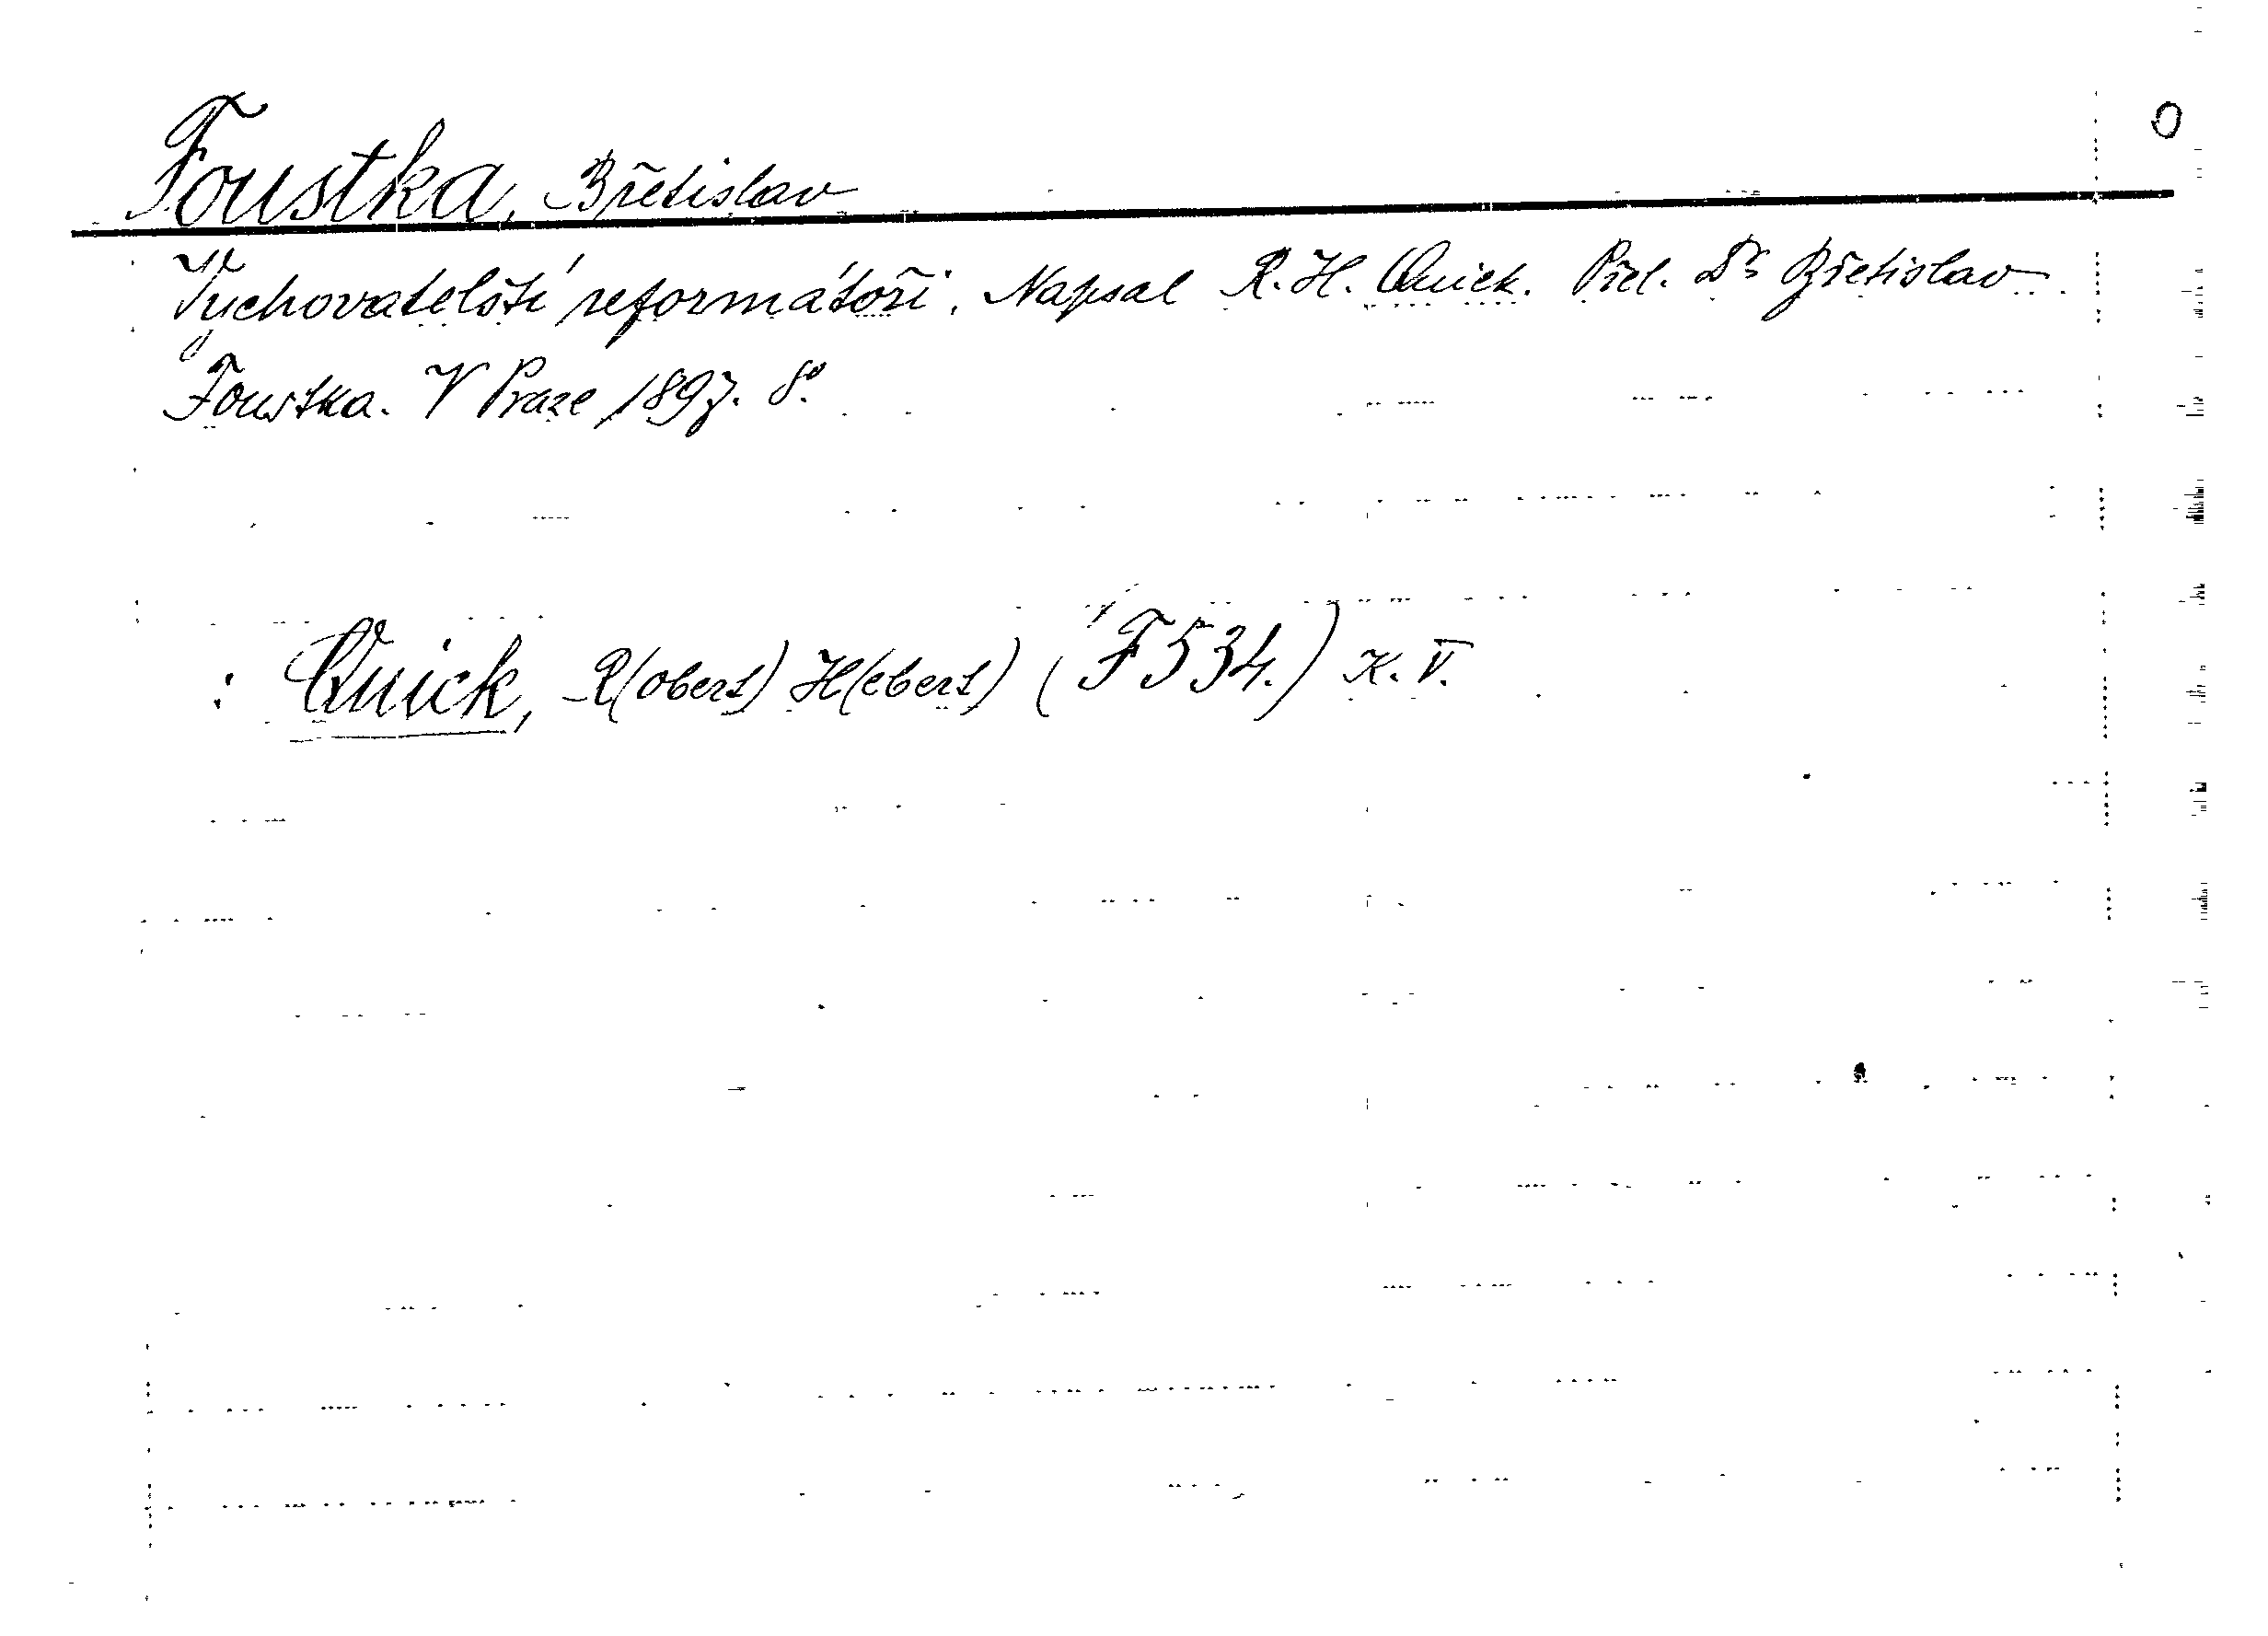 O
Foustka, Břetislav
Vychovatelští reformátoři. Napsal R. H. Quick. Přel. Dr Břetislav
Foustka. V Praze 1897. 8º.
: Quick, R(obert) H(ebert) (F534.) K. V.